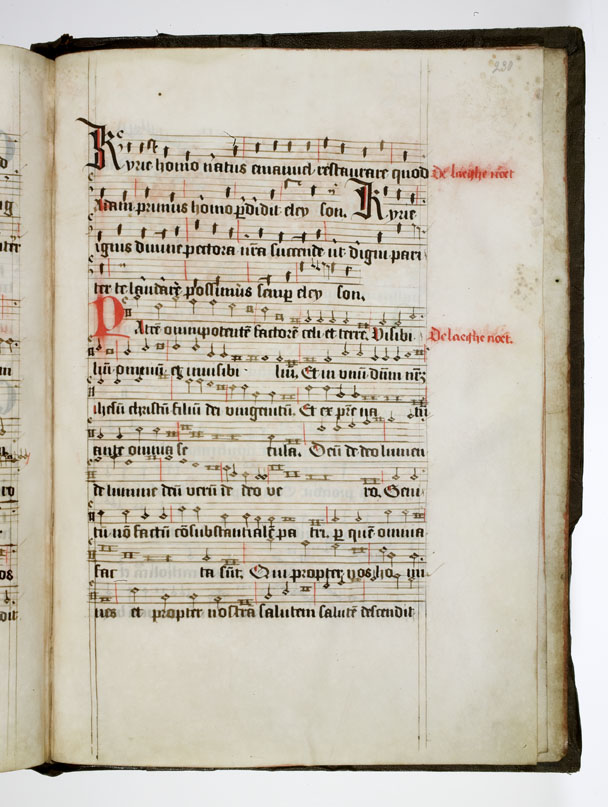 230
Kyrie homo natus emanuel restaurare quod
De laeghe noet
Adam primus homo p̄didit eley son. Kyrie
ign̄is divine pectora nr̄a succende ut digni pari
ter te laudare possimus semp eley son.
Patrē omnipotentē factorē celi et terre. Visibi
De laeghe noet.
liū omniū et invisibi liū. Et in unū dūm nr̄m
ihesū christū filiū dei unigenitū. Et ex pr̄e na tū
ante omnia se cula. Deū de deo lumen
de lumine deū verū de deo ve ro. Geni
tū nō factū cōsubstantialē pa tri. p quē omnia
fac ta sūt. Qui propter nos ho mi
nes et propter nostra salutem salutē descendit